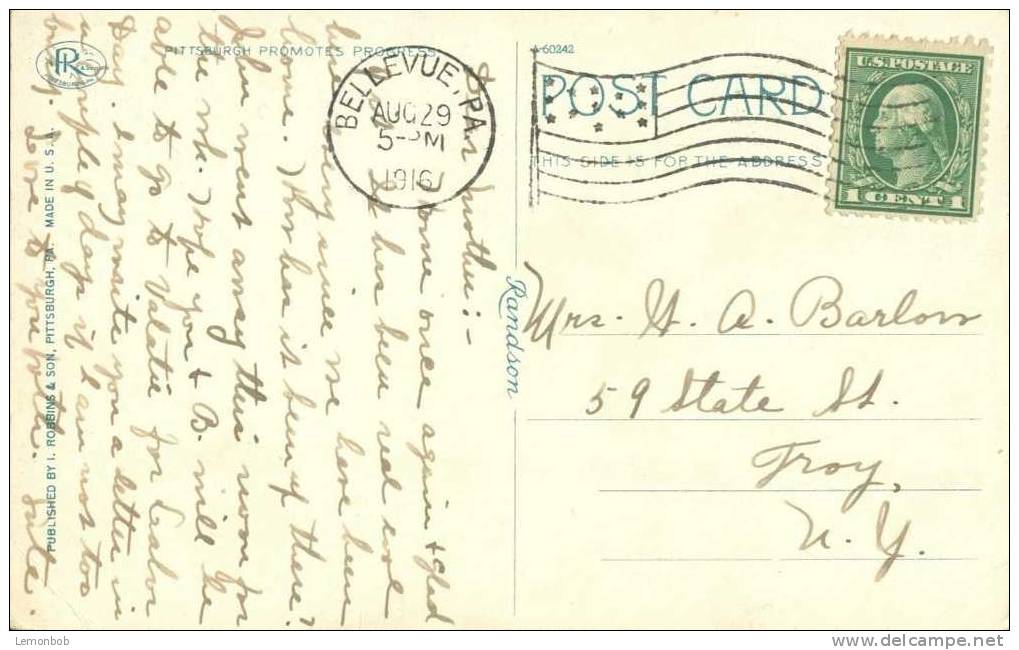 PITTSBURGH PROMOTES PROGRESS
A-60242
POST CARD
THIS SIDE IS FOR THE ADDRESS
BELLEVUE, PA.
AUG 29
5-PM
1916
U.S. POSTAGE
1 CENT 1
PR
PUBLISHED BY I. ROBBINS & SON, PITTSBURGH, PA. MADE IN U.S.A.
Randson
Dear Mother:-
Home once again & glad
it has been real cool
here every since we have been
home. How has it been up there?
John went away this noon for
the wk. Hope you & B. will be
able to go to Valatie for Labor
Day. I may write you a letter in
a couple of days if I am not too
busy.
Love to you both.
Mrs. H. A. Barlow
59 State St.
Troy,
N.Y.
Lemonbob
delcampe.net